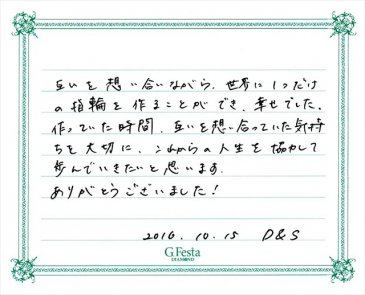 互いを想い合いながら、世界に1つだけ
の指輪を作ることができ、幸せでした。
作っていた時間、互いを想い合っていた気持
ちを大切に、これからの人生を協力して
歩んでいきたいと思います。
ありがとうございました！
2016.10.15 D&S
G.Festa
DIAMOND